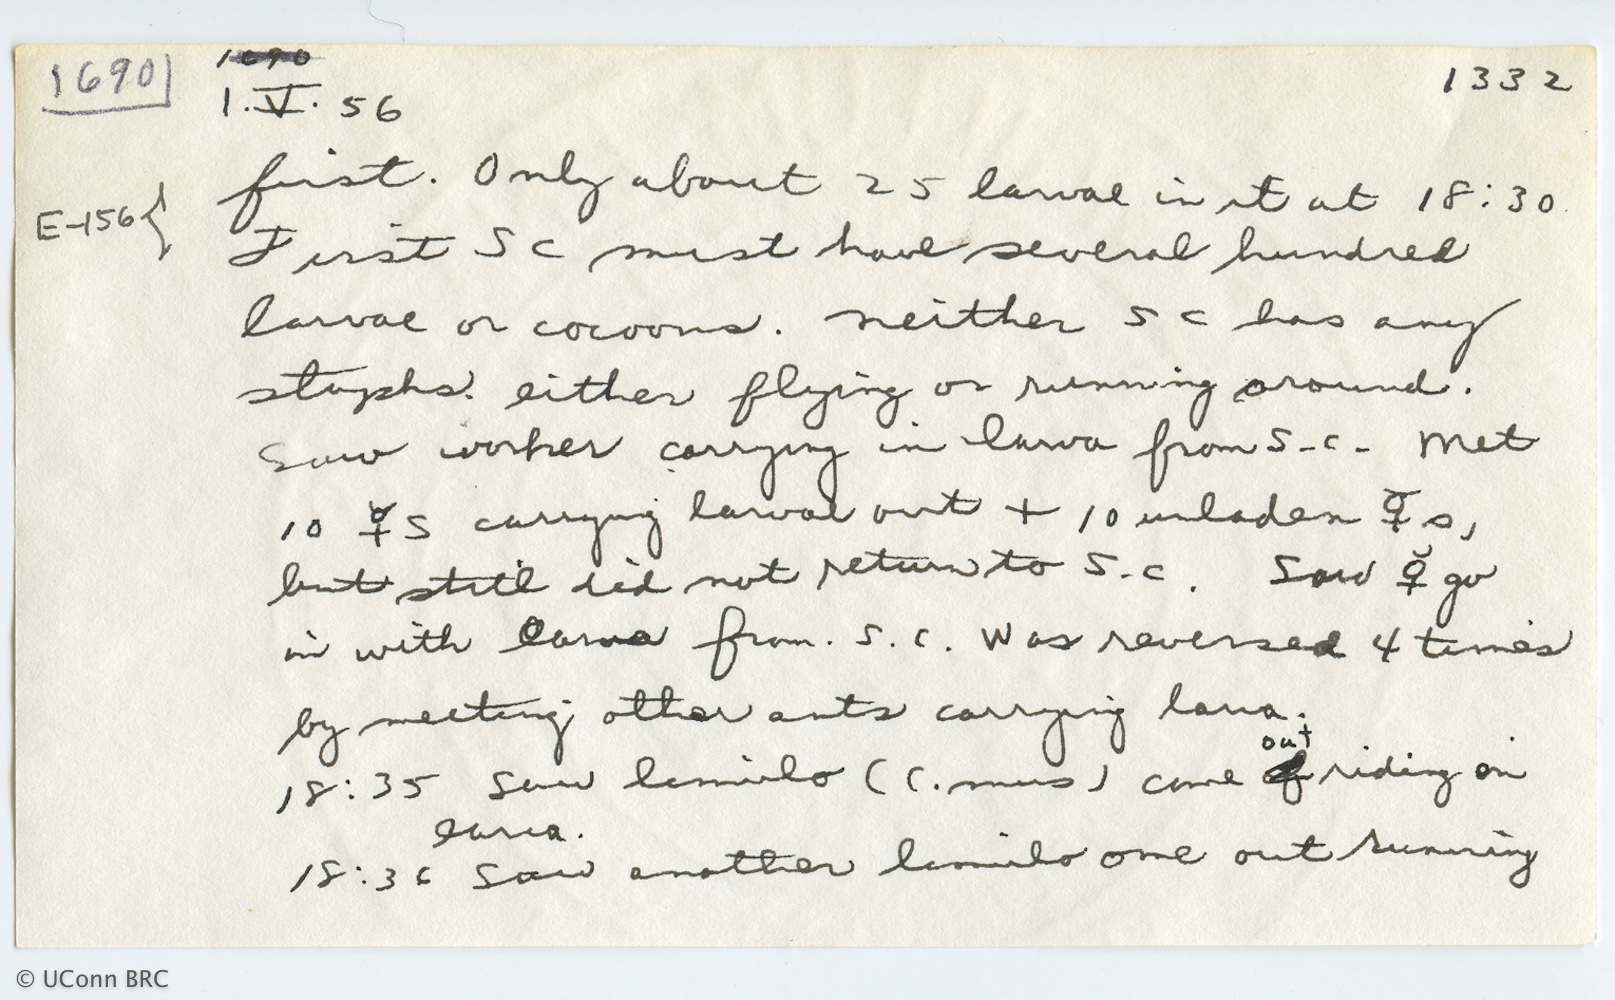 1690
1690
1332
1.V.56
first. Only about 25 larvae in it at 18:30.
E-156 {
First SC must have several hundred
larvae or cocoons. neither SC has any
staphs. either flying or running around.
Saw worker carrying in larva from S.C. Met
10 ☿s carrying larvae out + 10 unladen ☿s,
but still did not return to S.C. Saw ☿ go
in with larva from S.C. Was reversed 4 times
by meeting other ants carrying larva.
18:35 Saw limulo (C. mus) come out riding on
larva.
18:36 Saw another limulo one out running
© UConn BRC